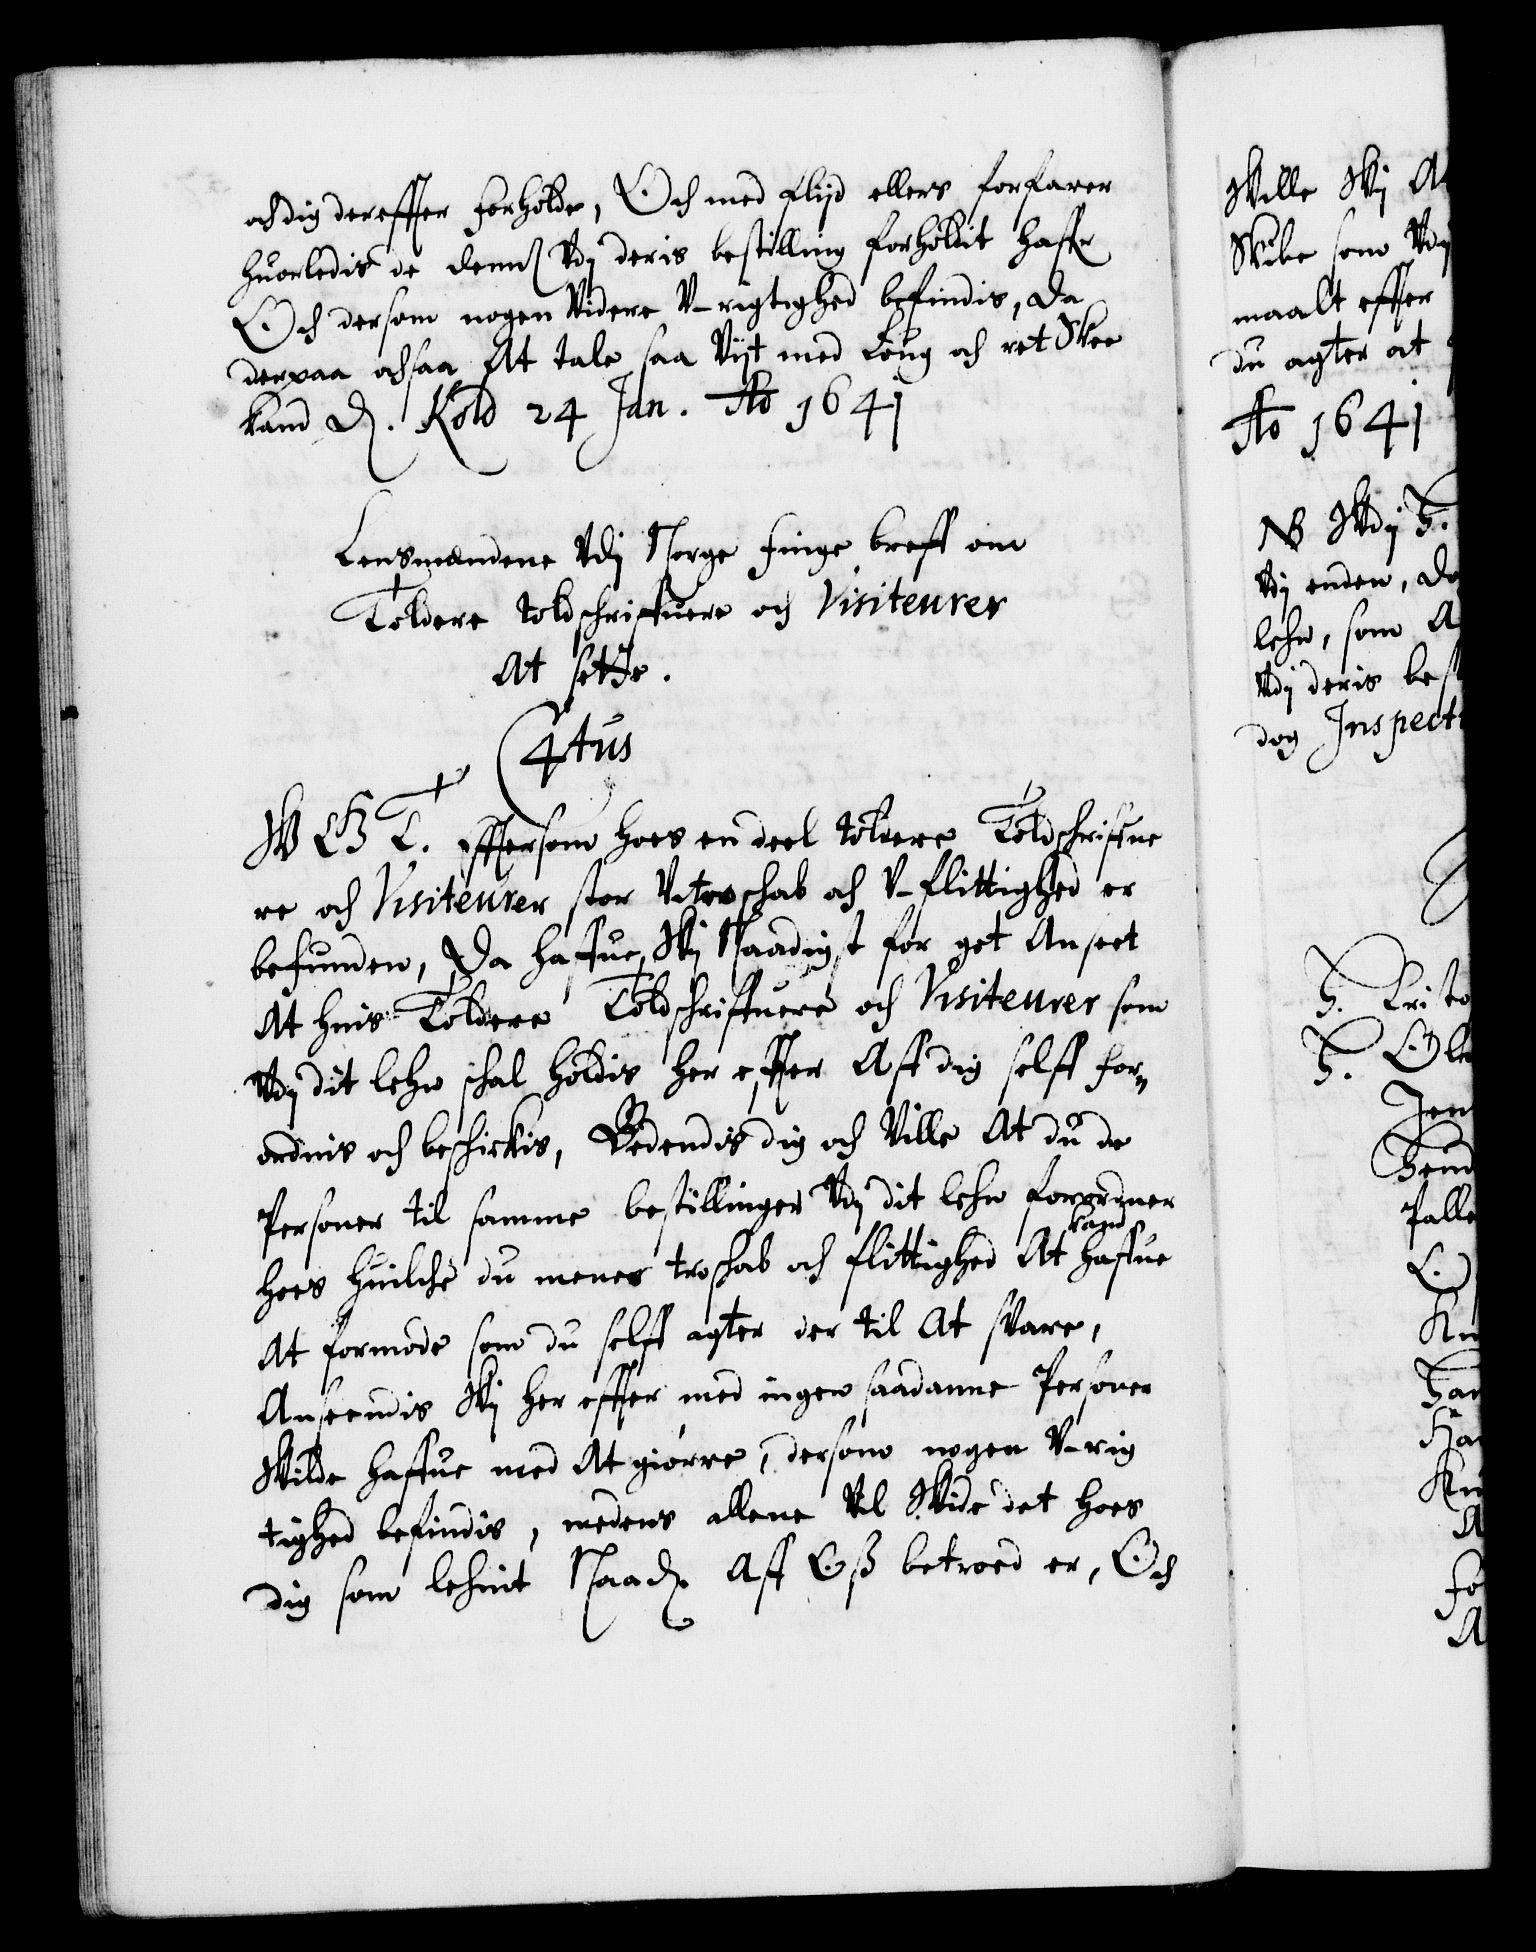 och dig derefter forholde, Och med flijd ellers forfarer
huorledis de dennem Vdj deris bestilling forholdit haffr
Och dersom nogen Videre V-rigtighed befindis, da
derpaa ochsaa At tale saa Vijt med Loug och ret Skee
kand D. Kold 24 Jan. Ao 1641
Lensmændene Vdj Norge finge breff om
Toldere toldschriffuere och Visiteurer
At sette.
C4tus
W G T. Efftersom hoes en deel toldere Toldschriffue
re och Visiteurer stor Vtroschab och V-flittighed er
befunden, Da haffue Wj Naadigst for got Anseet
At huis Toldere Toldschriffuere och Visiteurer som
Vdj dit lehn schal holdis her effter Aff dig self for,
ordnis och beschickis, Bedendis dig och Ville At du de
Personer til samme bestillinger Vdj dit lehn forordner
hoes huilche du mener troschab och flittighed At kand haffue
At formode som du selff agter der til At svare,
Anseendis Wj her effter med ingen saadanne Personer
Wilde haffue med At giørre, dersom nogen V-rig
tighed befindis, medens allene Vil Wide det hoes
dig som lehnit Naadr Aff Oß betroed er, Och
Wille Wj A
Skibe som Vdj
maalt effter
du agter at
Ao 1641
NB Wdj H.
Vdj enden, da
lehn, som A
Vdj deris best
dog Inspect
H. Christo
H. Ole
Jen
Hend
Palle
O
Kn
Han
Ha
Kn
A
fo
A